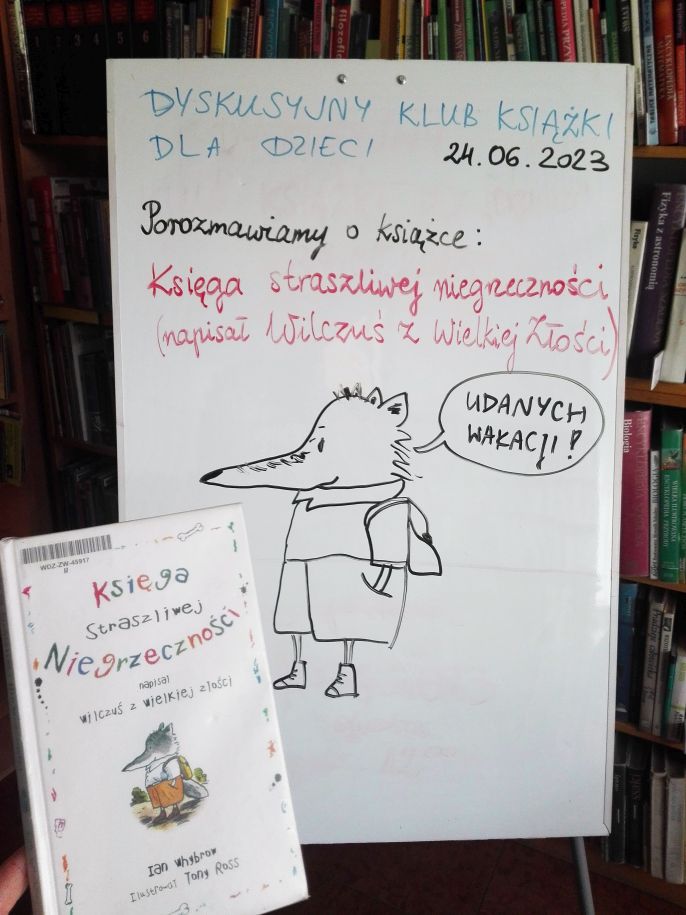 1 2 3 4 5 6
filozofic
DYSKUSYJNY KLUB KSIĄŻKI
DLA DZIECI 24.06.2023
Porozmawiamy o książce:
Księga straszliwej niegrzeczności
(napisał Wilczuś z Wielkiej Złości)
UDANYCH
WAKACJI!
Fizyka z astronomią
Fizyka
Biologia
WDZ-ZW-45917
Księga
Straszliwej
Niegrzeczności
napisał
wilczuś z wielkiej złości
Ian Whybrow
Ilustrował Tony Ross